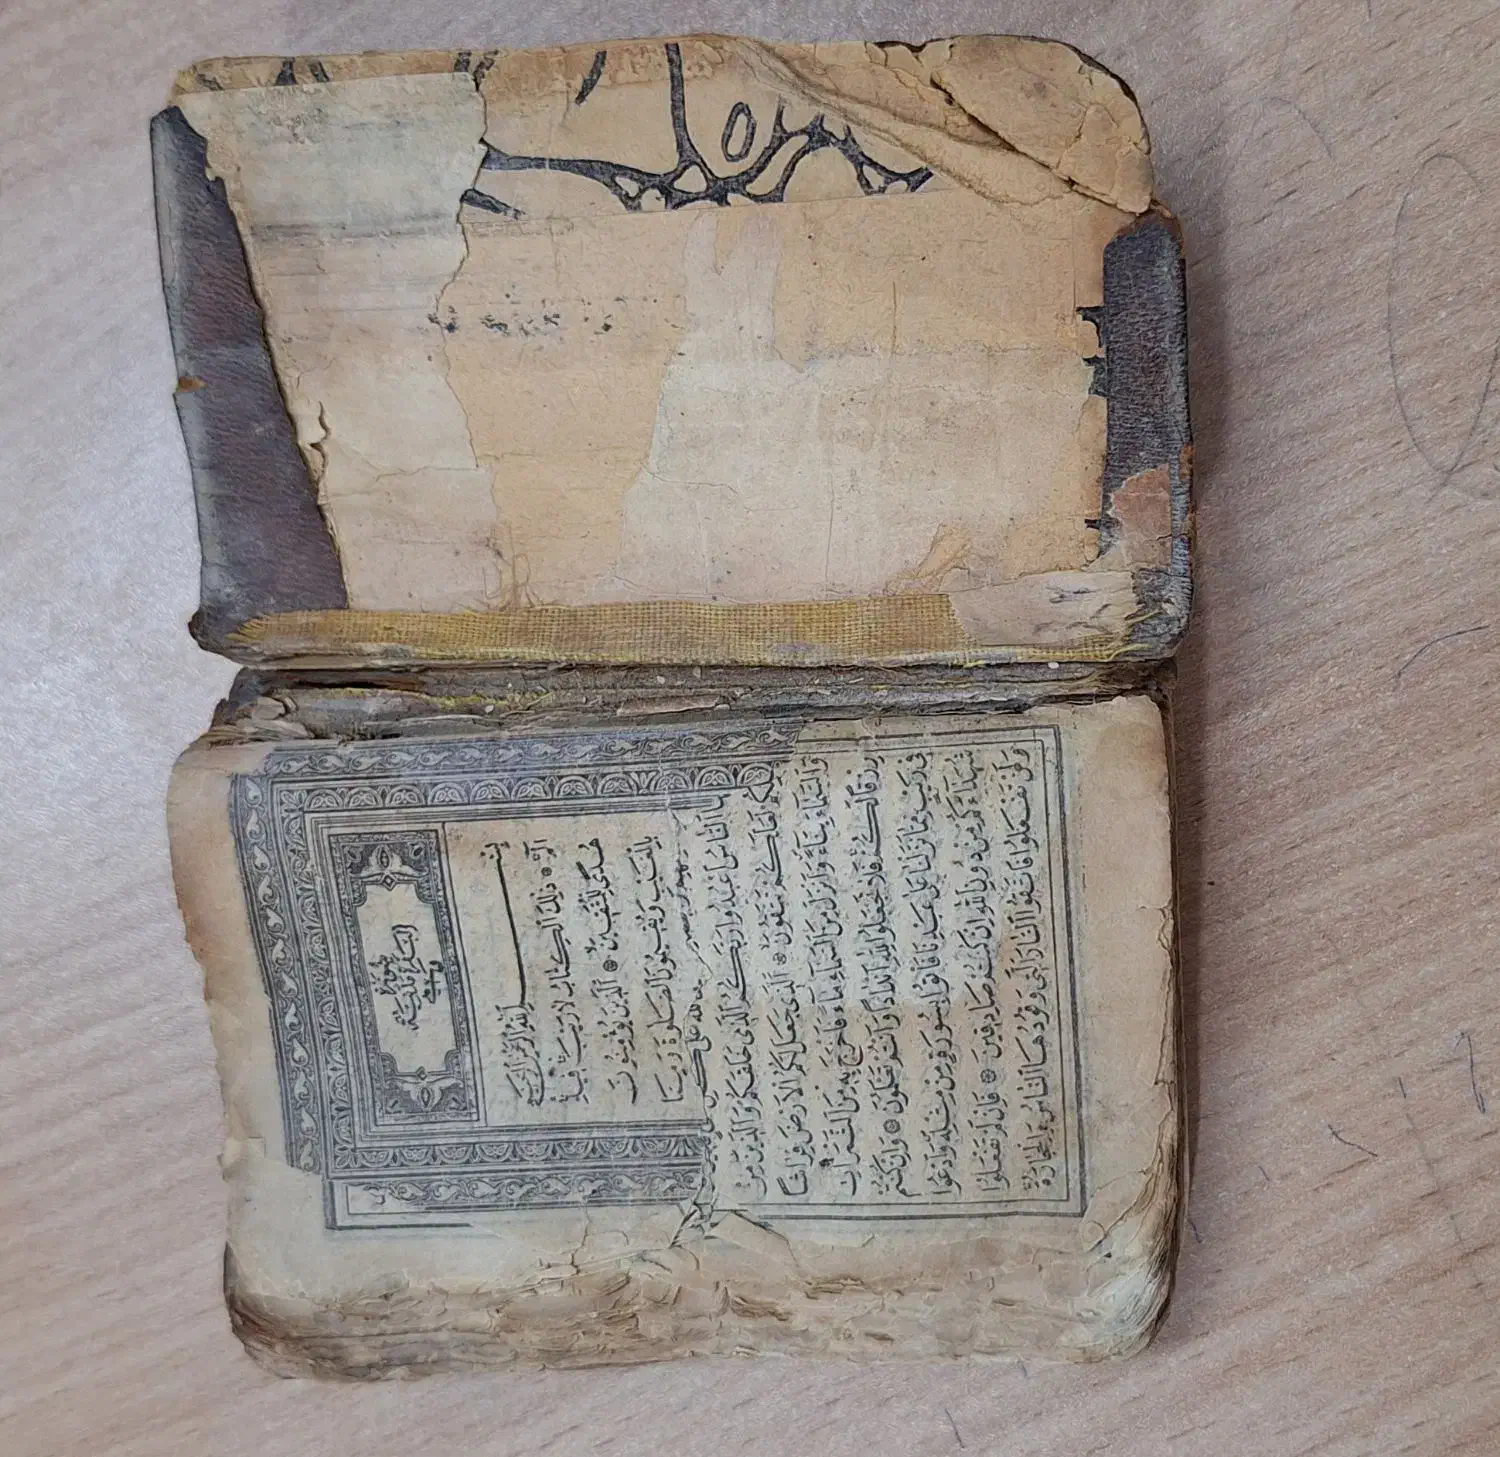 سُورَةُ
البَقَرَةِ مَدَنِيَّةٌ
بِسْمِ اللهِ الرَّحْمٰنِ الرَّحِيمِ
الٓمٓ ۞ ذٰلِكَ الْكِتَابُ لَا رَيْبَ فِيهِ
هُدًى لِلْمُتَّقِينَ ۞ اَلَّذِينَ يُؤْمِنُونَ
بِالْغَيْبِ وَيُقِيمُونَ الصَّلٰوةَ
الله على كل
يَا اَيُّهَا النَّاسُ اعْبُدُوا رَبَّكُمُ الَّذِي خَلَقَكُمْ وَالَّذِينَ مِنْ
قَبْلِكُمْ لَعَلَّكُمْ تَتَّقُونَ ۞ اَلَّذِي جَعَلَ لَكُمُ الْاَرْضَ فِرَاشًا
وَالسَّمَاءَ بِنَاءً وَاَنْزَلَ مِنَ السَّمَاءِ مَاءً فَاَخْرَجَ بِهِ مِنَ الثَّمَرَاتِ
رِزْقًا لَكُمْ فَلَا تَجْعَلُوا لِلّٰهِ اَنْدَادًا وَاَنْتُمْ تَعْلَمُونَ ۞ وَاِنْ كُنْتُمْ
فِي رَيْبٍ مِمَّا نَزَّلْنَا عَلٰى عَبْدِنَا فَأْتُوا بِسُورَةٍ مِنْ مِثْلِهِ وَادْعُوا
شُهَدَاءَكُمْ مِنْ دُونِ اللهِ اِنْ كُنْتُمْ صَادِقِينَ ۞ فَاِنْ لَمْ تَفْعَلُوا
وَلَنْ تَفْعَلُوا فَاتَّقُوا النَّارَ الَّتِي وَقُودُهَا النَّاسُ وَالْحِجَارَةُ